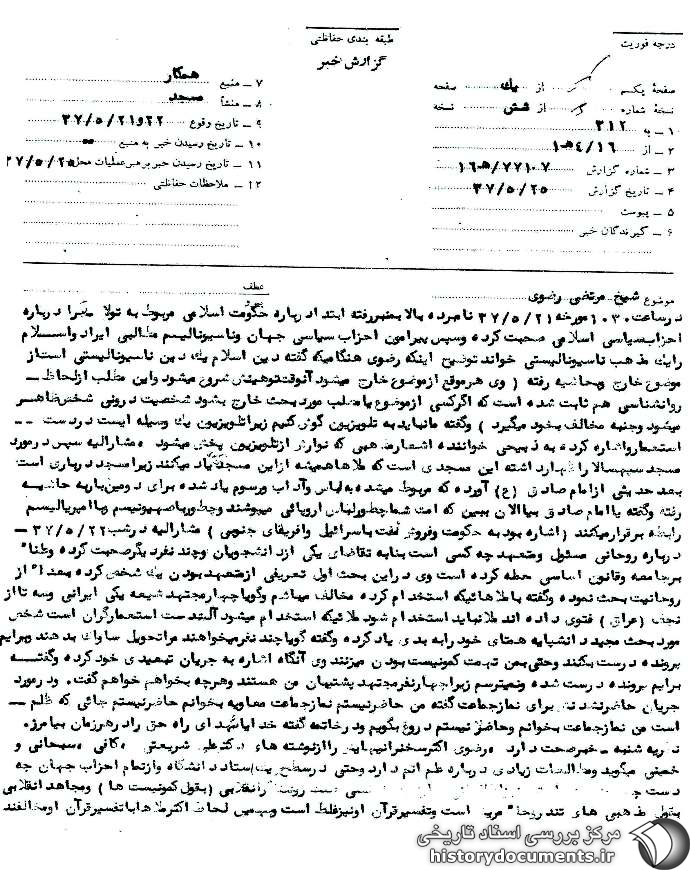 طبقه بندی حفاظتی
گزارش خبر
درجه فوریت
صفحهٔ یکم از یک صفحه
نسخهٔ شماره از شش نسخه
۱ ــ به ۳۱۲
۲ ــ از ۴/۱۶هـ۱
۳ ــ شماره گزارش ۷۷۱۰۷/هـ۱۶
۴ ــ تاریخ گزارش ۳۷/۵/۲۵
۵ ــ پیوست
۶ ــ گیرندگان خبر
۷ ــ منبع همکار
۸ ــ منشأ مسجد
۹ ــ تاریخ وقوع ۲۲و۳۷/۵/۲۱
۱۰ ــ تاریخ رسیدن خبر به منبع
۱۱ ــ تاریخ رسیدن خبر برهبر عملیات محل ۳۷/۵/۲۵
۱۲ ــ ملاحظات حفاظتی
موضوع شیخ مرتضی رضوی
عطف
پیرو
در ساعت ۱۰۳۰ مورخه ۳۷/۵/۲۱ نامبرده بالا بمنبر رفته ابتدا درباره حکومت اسلامی مربوط به تولا درباره
احزاب سیاسی اسلامی صحبت کرده و سپس پیرامون احزاب سیاسی جهان و ناسیونالیسم مطالبی ایراد و اسلام
را یک مذهب ناسیونالیستی خواند توضیح اینکه رضوی هنگامیکه گفته دین اسلام یک دین ناسیونالیستی است از
موضوع خارج و بحاشیه رفته ( وی هر موقع از موضوع خارج میشود آنوقت توهینش شروع میشود و این مطلب از لحاظ ــ
روانشناسی هم ثابت شده است که اگر کسی از موضوع یا مطلب مورد بحث خارج بشود شخصیت درونی شخص ظاهر
میشود و جنبه مخالف بخود میگیرد ) و گفته ما نباید به تلویزیون گوش کنیم زیرا تلویزیون یک وسیله ایست در دست ــ
استعمار و اشاره کرده به ذبیحی خواننده اشعار مذهبی که نوارش از تلویزیون پخش میشود مشارالیه سپس در مورد
مسجد سپهسالار اظهار داشته این مسجدی است که ملاها همیشه از این مسجد یاد میکنند زیرا مسجد درباری است
بعد حدیثی از امام صادق (ع) آورده که مربوط میشده به لباس و آداب و رسوم یاد شده برای دومین بار به حاشیه
رفته و گفته یا امام صادق بیا الان ببین که امت شما چطور لباس اروپائی میپوشند و چطور با صهیونیسم و با امپریالیسم
رابطه برقرار میکنند (اشاره بود به حکومت و فروش نفت باسرائیل و افریقای جنوبی ) مشارالیه در شب ۳۷/۵/۲۲ ــ
درباره روحانی مسئول و متعهد چه کسی است بنا به تقاضای یکی از دانشجویان و چند نفر دیگر صحبت کرده و علناً
بر جامعه و قانون اساسی حمله کرده است وی در این بحث اول تعریفی از متعهد بودن یک شخص کرده بعداً از
روحانیت بحث نموده و گفته با ملاهائیکه استخدام کرده مخالف میباشم و گویا چهار مجتهد شیعه یکی ایرانی و سه تا از
نجف (عراق ) فتوی داده اند ملا نباید استخدام شود ملائیکه استخدام میشود آلت دست استعمارگران است شخص
مورد بحث مجددا شبانه های خود را به بدی یاد کرده و گفته گویا چند نفر میخواهند مرا تحویل ساواک بدهند و برایم
پرونده درست بکنند و حتی بمن تهمت کمونیست بودن میزنند وی آنگاه اشاره به جریان تبعیدی خود کرده و گفته
برایم پرونده درست شده و نمیترسم زیرا چهار نفر مجتهد پشتیبان من هستند و هر چه بخواهم خواهم گفت. و در مورد
جریان حاضر نشدنش برای نماز جماعت گفته من حاضر نیستم نماز جماعت معاویه بخوانم حاضر نیستم جائی که ظلم ــ
است من نماز جماعت بخوانم و حاضر نیستم دروغ بگویم و در خاتمه گفته خدایا شهدای راه حق را در هر زمان بیامرز.
نظریه شنبه ـ خبر صحت دارد رضوی اکثر سخنرانیهایش را از نوشته های دکتر علی شریعتی ، کافی ، سبحانی و
خمینی میگوید و مطالعات زیادی درباره علم اتم دارد و حتی در سطح یک استاد دانشگاه و از تمام احزاب جهان چه
دست انقلابی (بقول کمونیست ها ) و مجاهد انقلابی
بقول مذهبی های تندرو است و تفسیر قرآن او نیز غلط است و بهمین لحاظ اکثر ملاها با تفسیر قرآن او مخالفند
مرکز بررسی اسناد تاریخی
historydocuments.ir